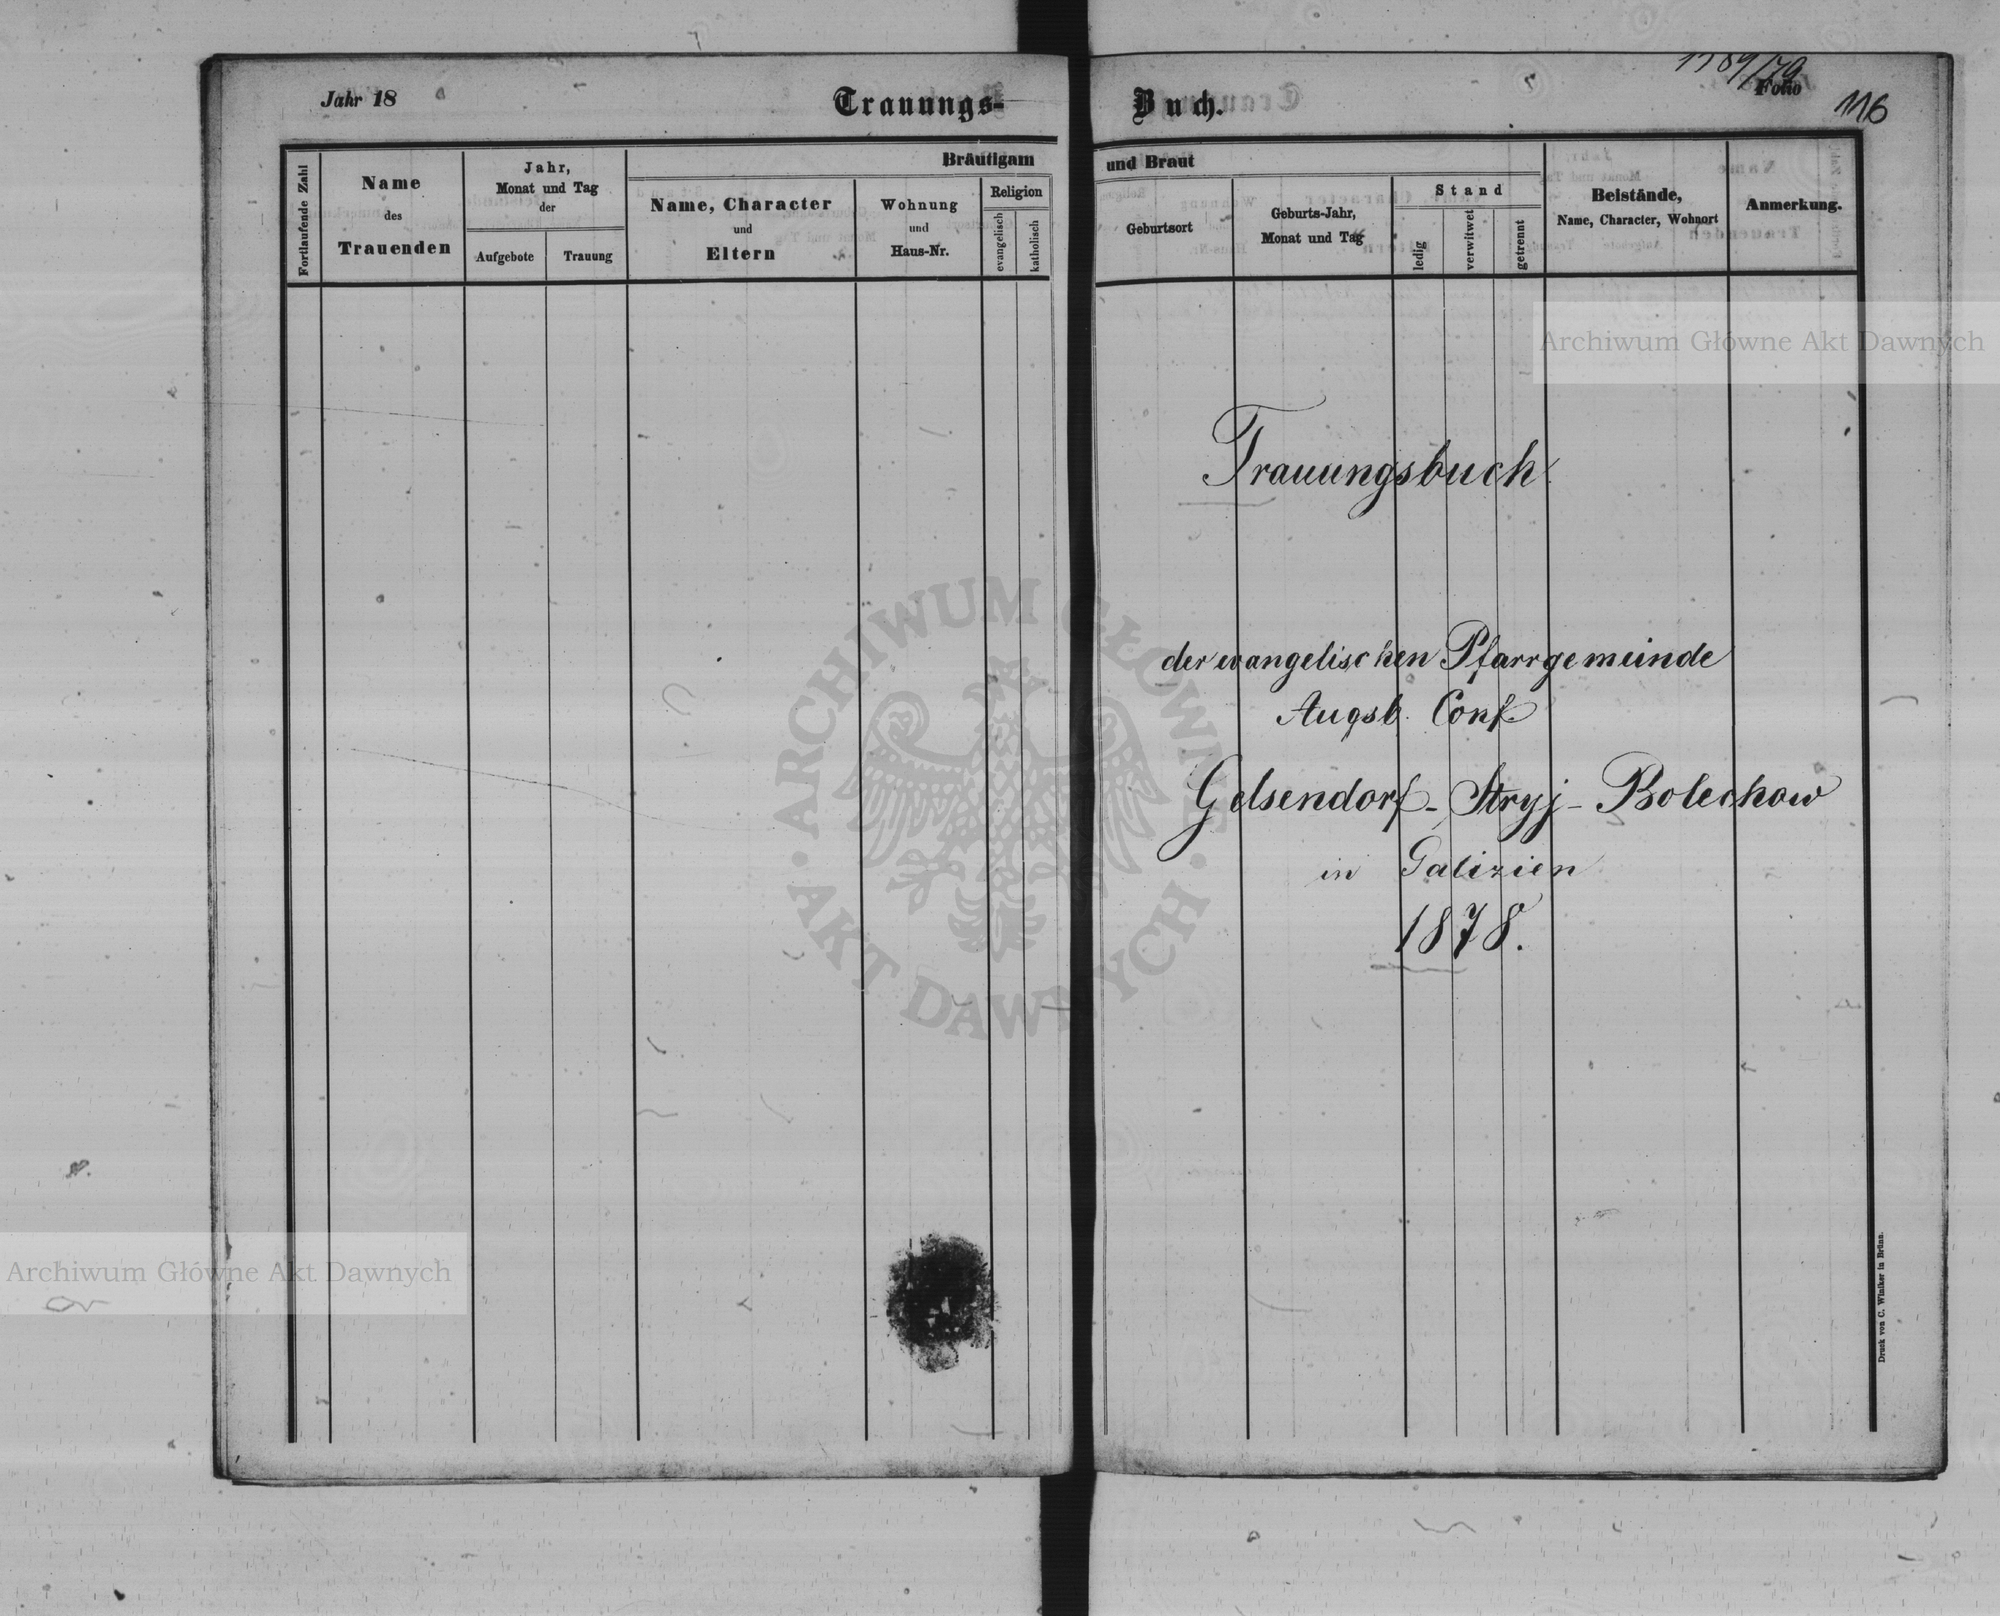 Jahr 18
Trauungs-
Fortlaufende Zahl
Name
des
Trauenden
Jahr,
Monat und Tag
der
Aufgebote
Trauung
Bräutigam
Name, Character
und
Eltern
Wohnung
und
Haus-Nr.
Religion
evangelisch
katholisch
Buch.
Folio
116
und Braut
Geburtsort
Geburts-Jahr,
Monat und Tag
Stand
ledig
verwitwet
getrennt
Beistände,
Name, Character, Wohnort
Anmerkung.
Archiwum Główne Akt Dawnych
Trauungsbuch
der evangelischen Pfarrgemeinde
Augsb. Conf
Gelsendorf - Stryj - Bolechow
in Galizien
1878.
ARCHIWUM GŁÓWNE
AKT DAWNYCH
Archiwum Główne Akt Dawnych
Druck von C. Winiker in Brünn.